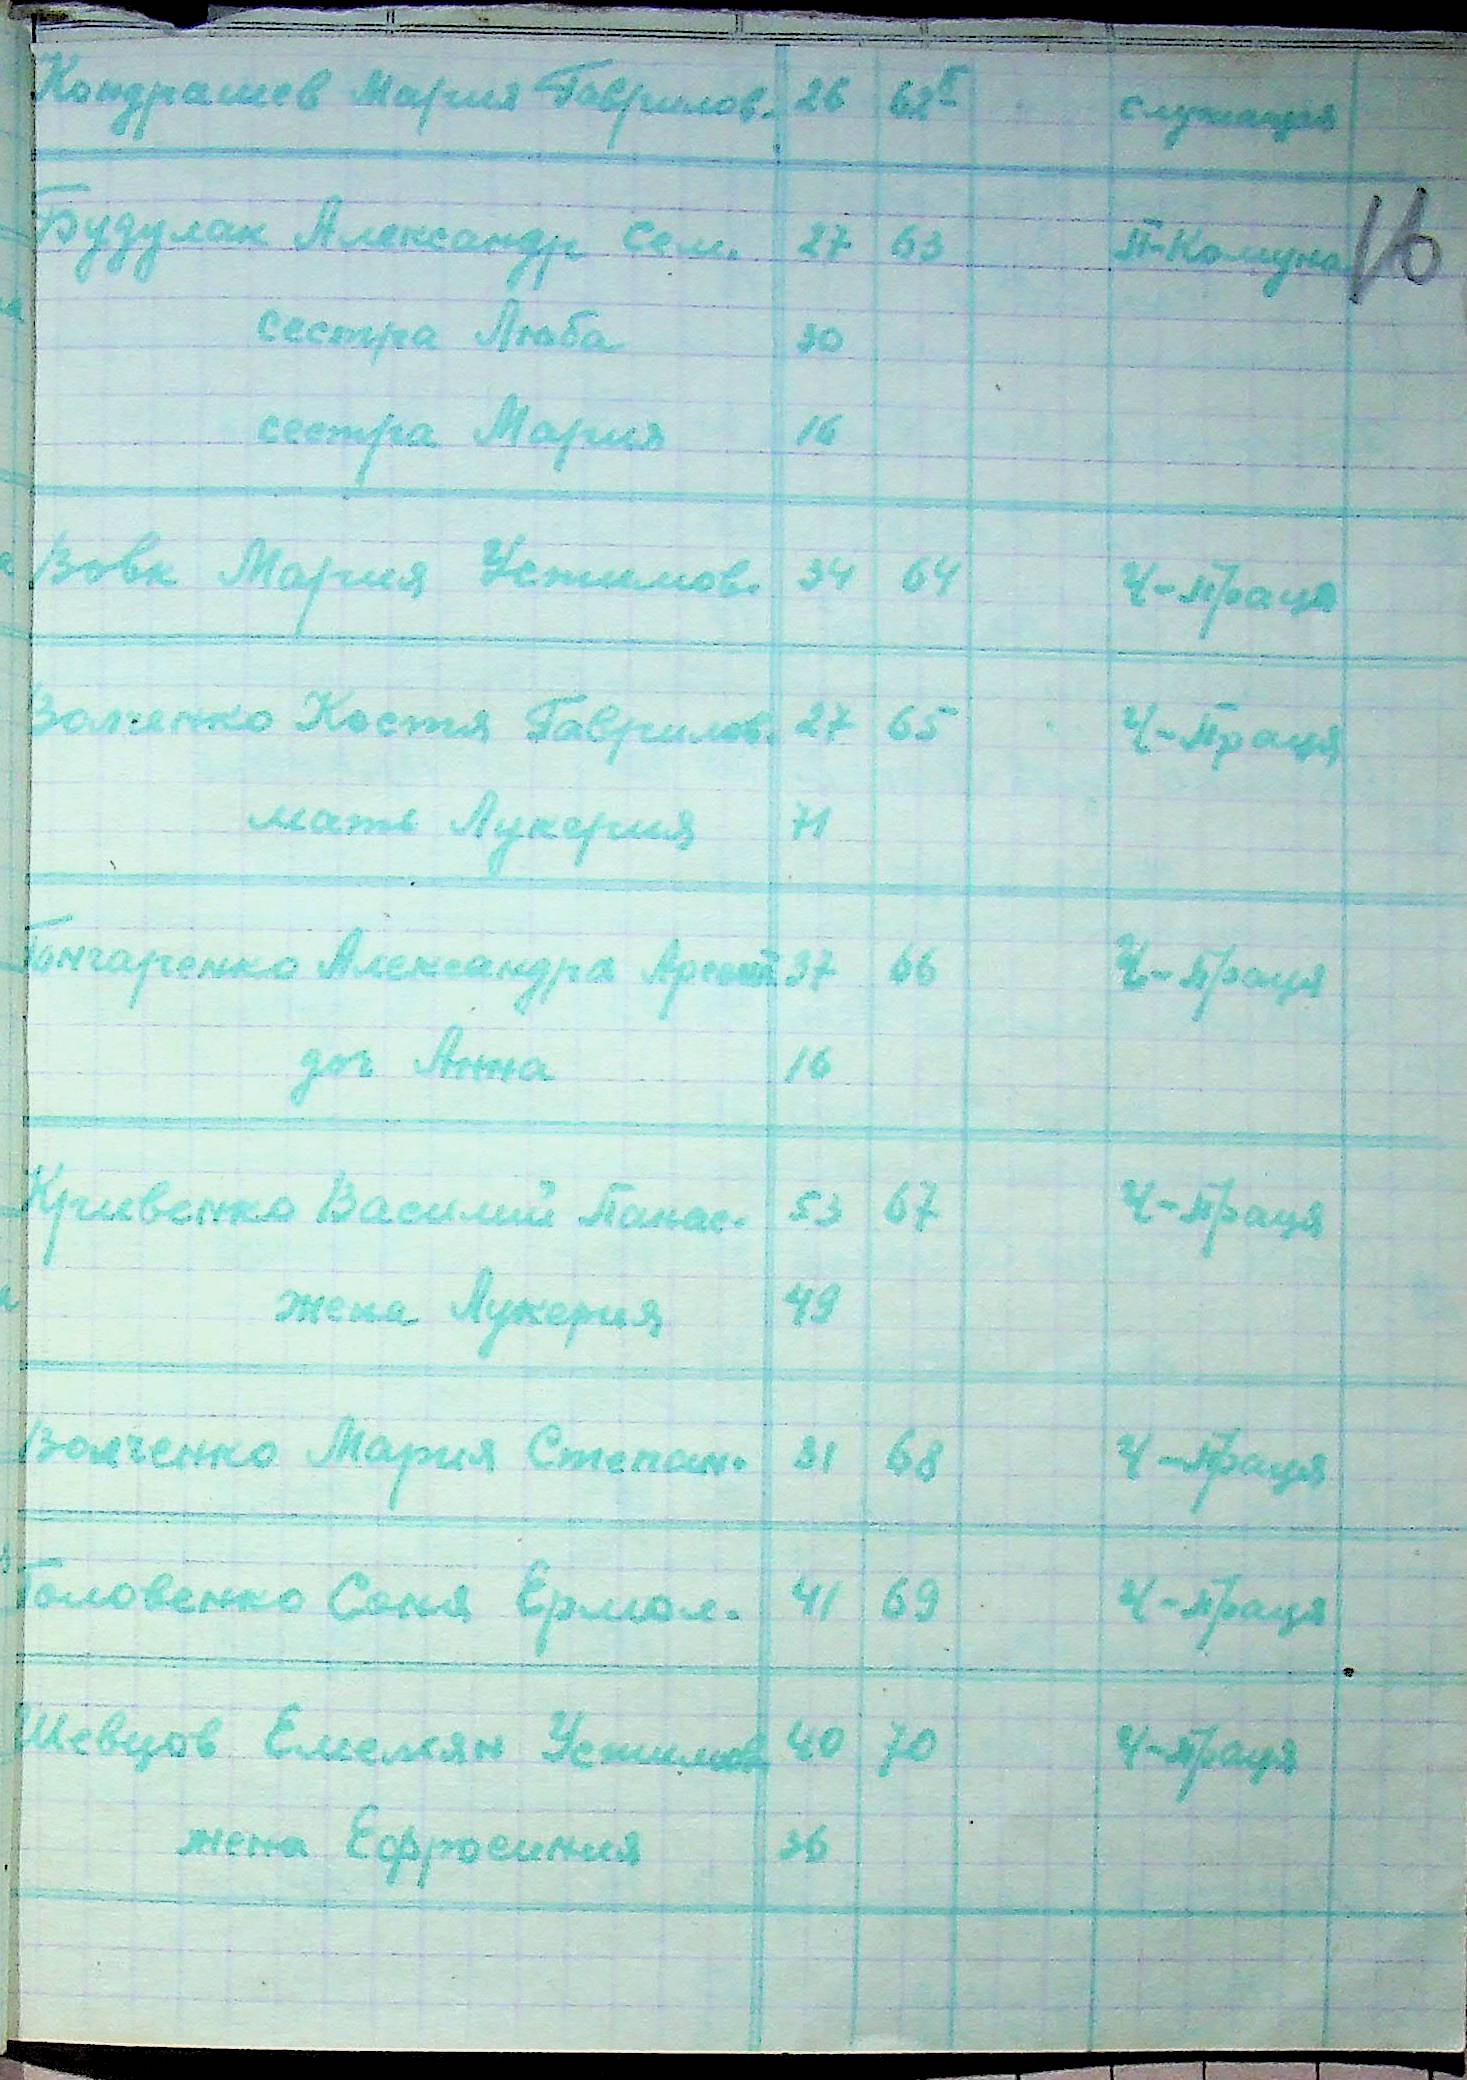 Кондрашев Мария Гаврилов. 26 62Б служащая
Будулак Александр Сем. 27 63 П-Комуна 16
сестра Люба 30
сестра Мария 16
Вовк Мария Устимов. 34 64 Ч-Праця
Волченко Костя Гаврилов. 27 65 Ч-Праця
мать Лукерия 71
Гончаренко Александра 37 66 Ч-Праця
доч Анна 16
Кривенко Василий Панас. 53 67 Ч-Праця
жена Лукерия 49
Волченко Мария Степан. 31 68 Ч-Праця
Головенко Соня Ермол. 41 69 Ч-Праця
Шевцов Емельян Устимов 40 70 Ч-Праця
жена Ефросиния 36